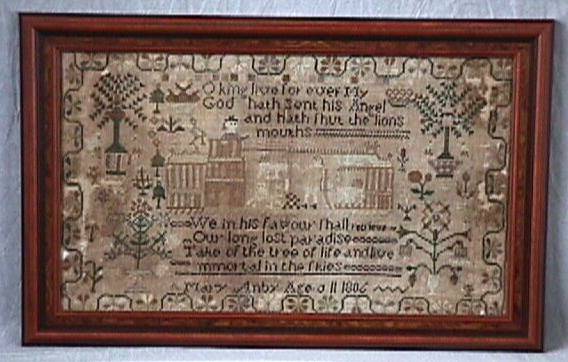 O king live for ever My
God hath sent his Angel
and hath shut the lions
mouths
We in his favour shall
Our long lost paradise
Take of the tree of life and live
immortal in the skies
Mary Age 11 1806